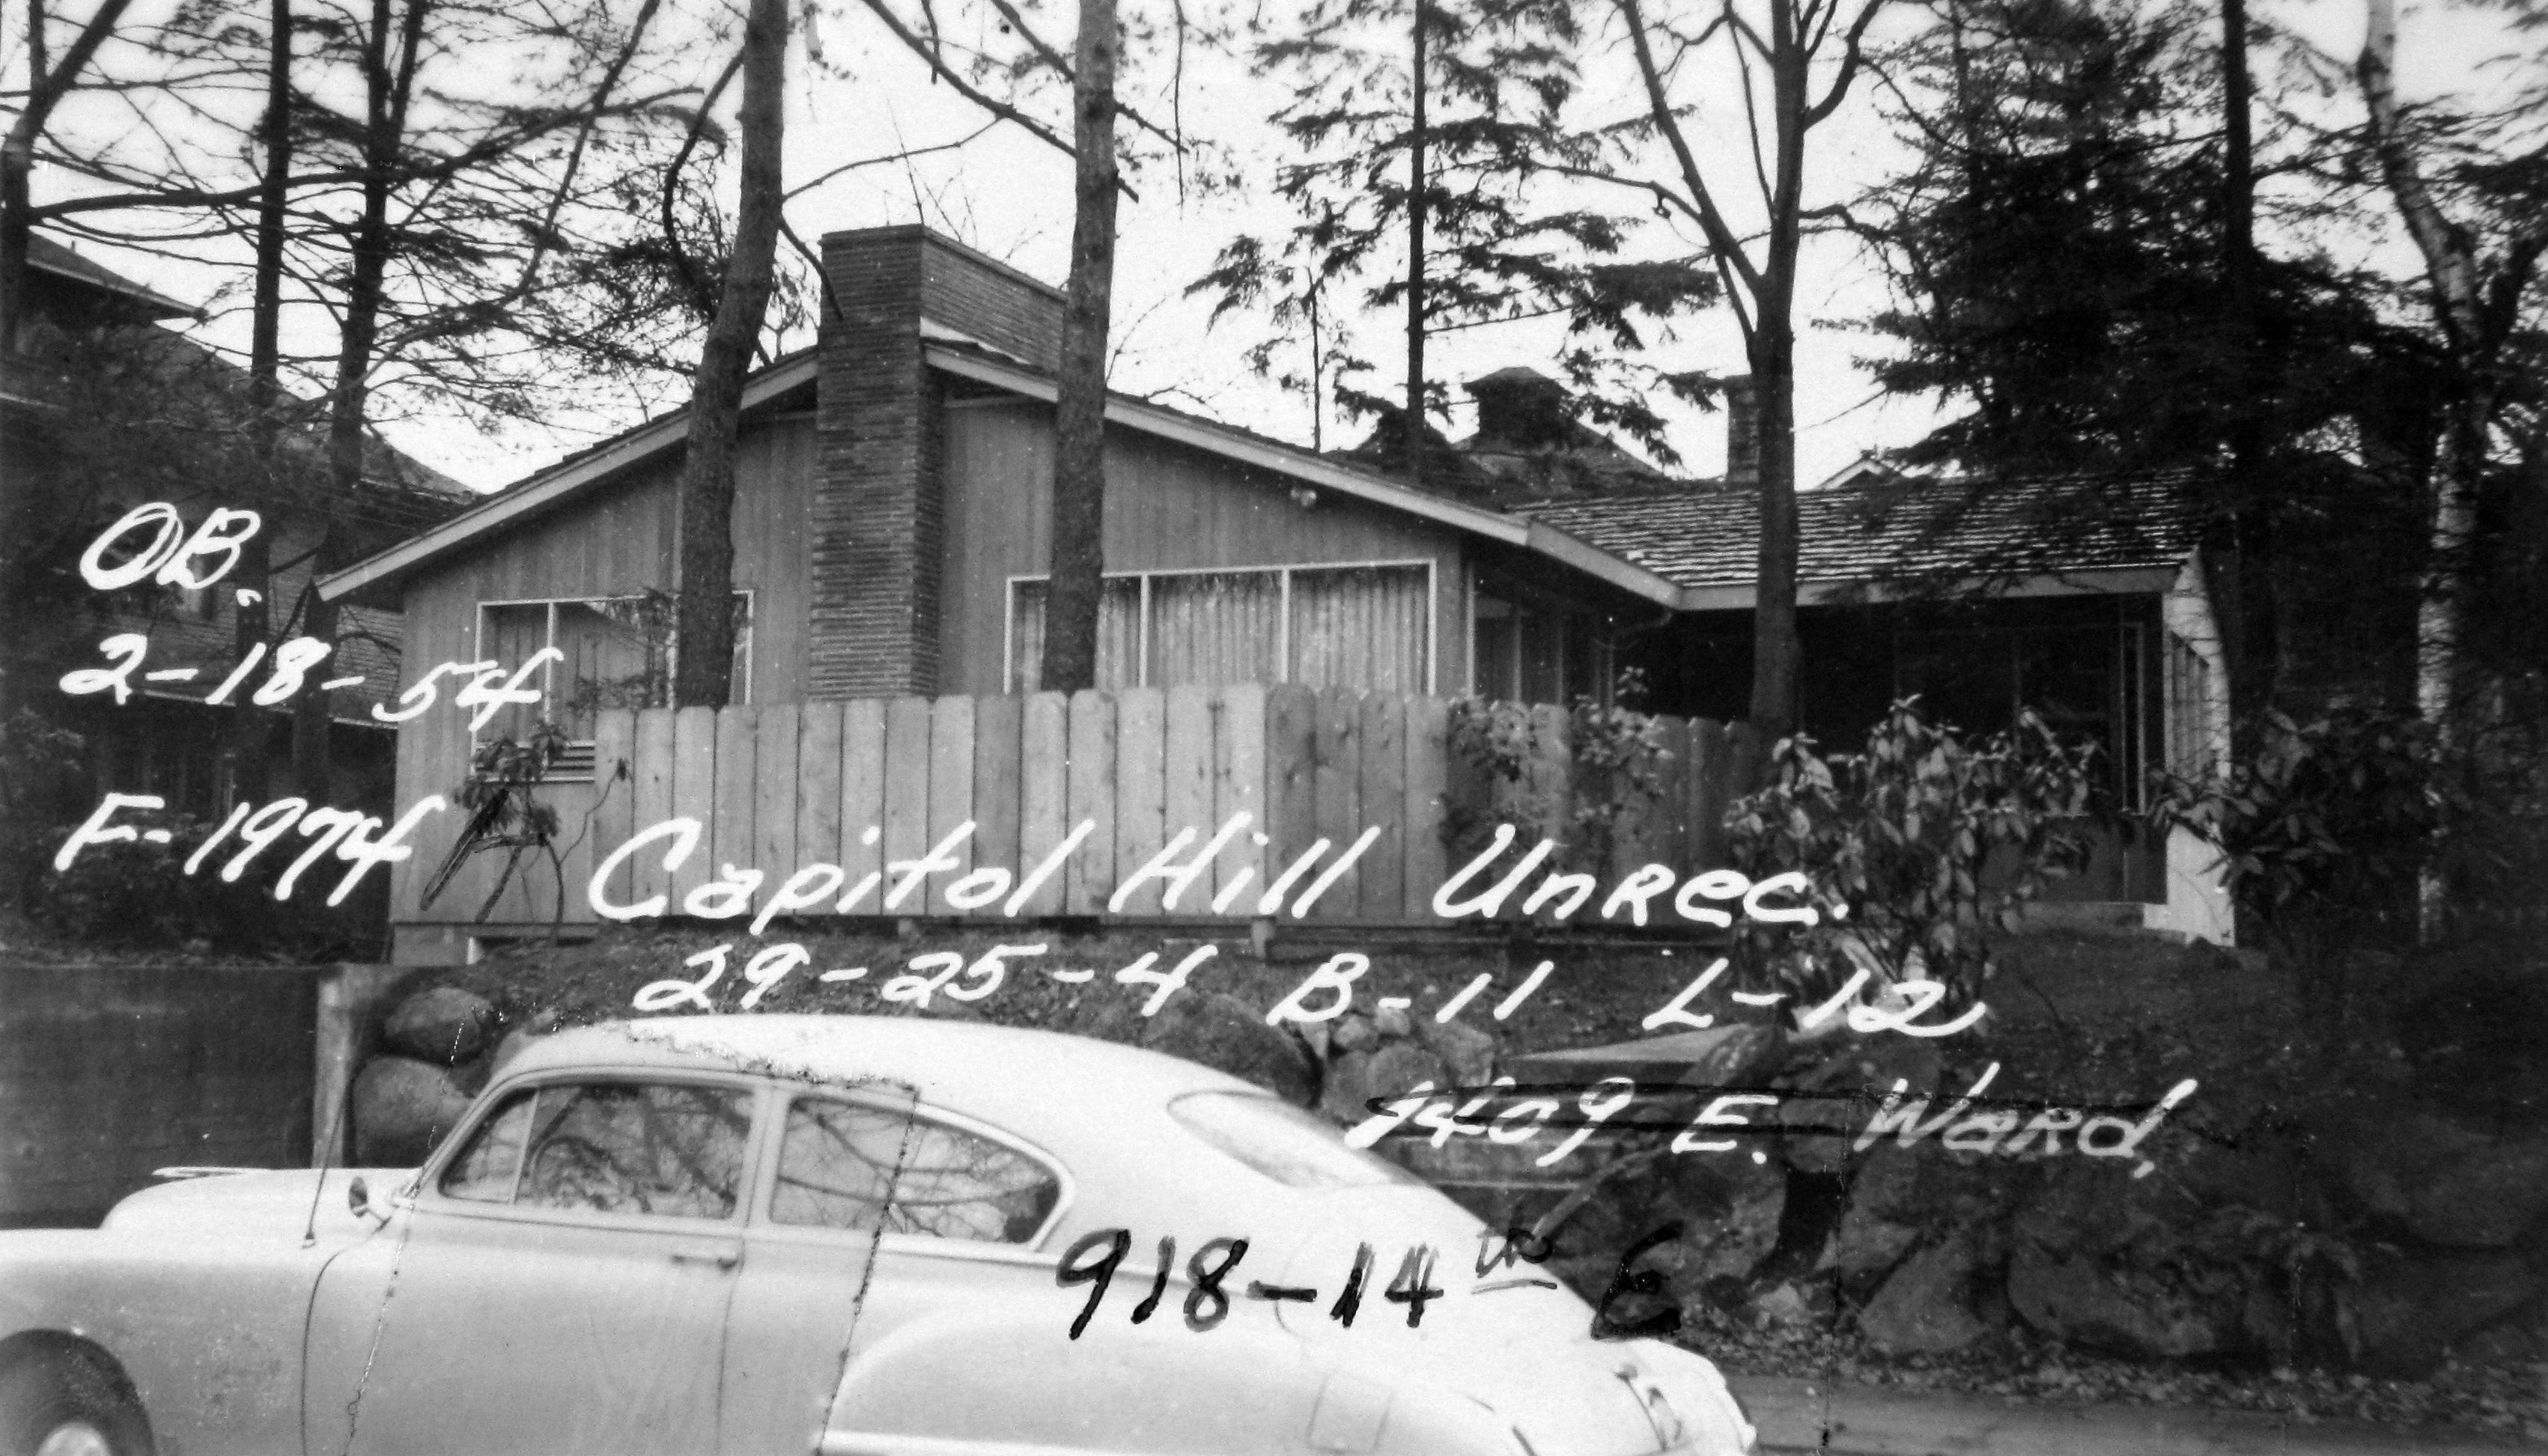 OB.
2-18-54
F-1974
Capitol Hill Unrec.
29-25-4 B-11 L-12
1409 E. Ward,
918-14th E